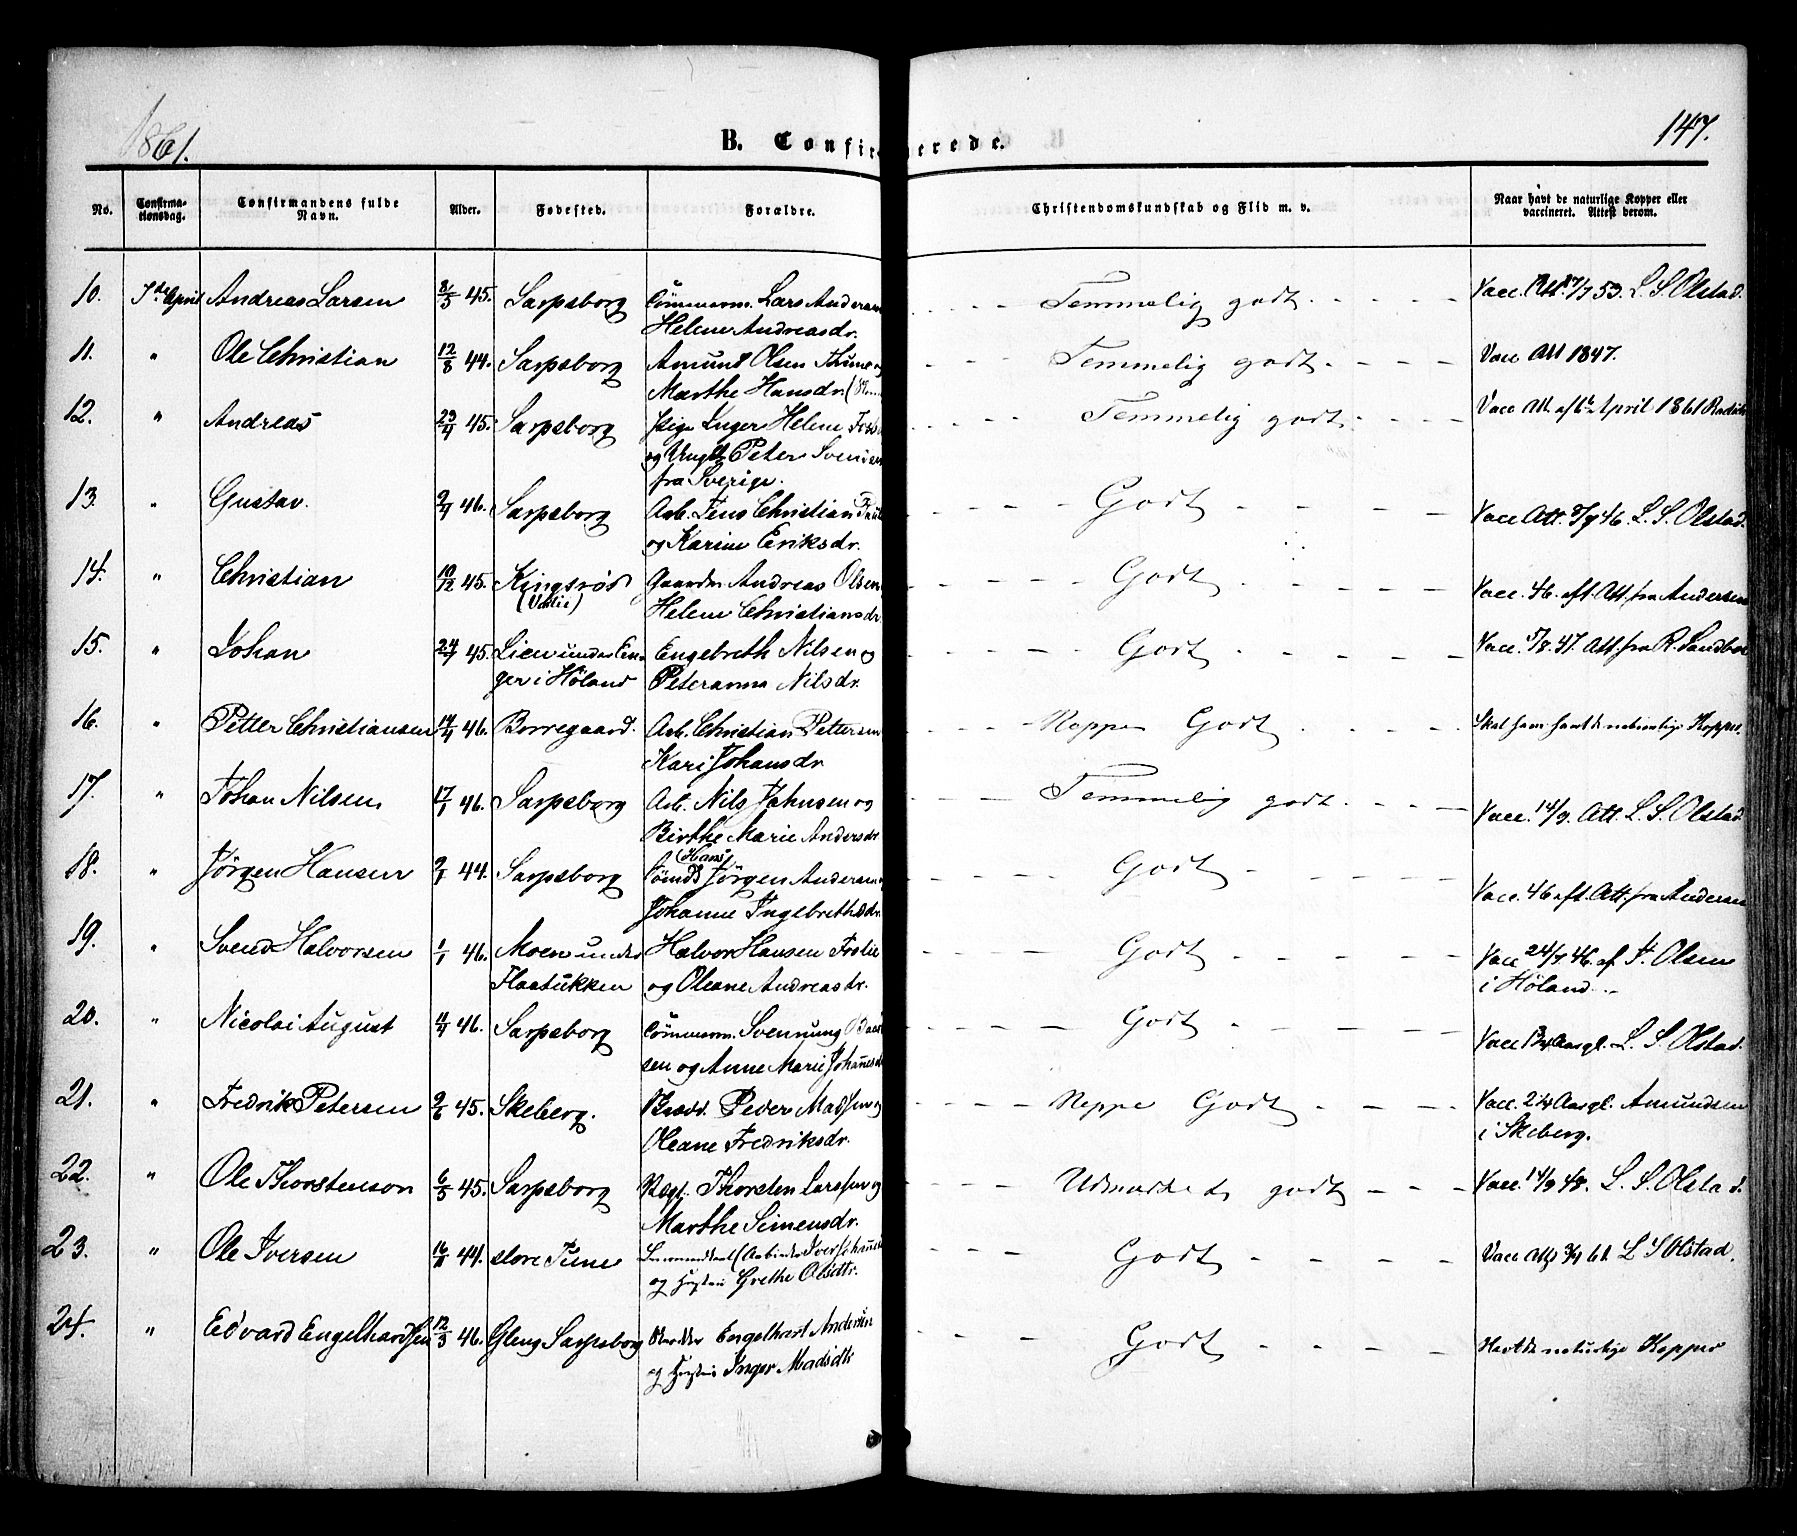 1861.
B. Confirmerede.
147.
No.
Confirma-
tionsdag.
Confirmandens fulde
Navn.
Alder.
Fødested.
Forældre.
Christendomskundskab og Flid m. v.
Naar havt de naturlige Kopper eller
vaccineret. Attest derom.
10. 7de April Andreas Larsen 8/5 45. Sarpsborg Lars Andersen Temmelig godt Vacc. Att. 17/7 53. L. S. Olstad.
Helene Andreasdr.
11. " Ole Christian 12/8 44. Sarpsborg Amund Olsen Thune og Temmelig godt Vacc Att 1847.
Marthe Hansdr.
12. " Andreas 23/4 45. Sarpsborg Pige Inger Helene Foss Temmelig godt Vacc Att. af 6te April 1861
og Ungk. Peter Svensen
fra Sverige.
13. " Gustav. 2/4 46. Sarpsborg Arb. Jens Christian Godt Vacc Att. 8/9 46. L. S. Olstad.
og Karine Eriksdr.
14. " Christian 10/12 45. Kingsrød Gaardm. Andreas Olsen Godt Vacc. 46. eft. Att. fra Andersen
Helene Christiansdr
15. " Johan 24/7 45. Lien under En- Engebreth Nilsen og Godt Vacc. 5/8 47. Att. fra R. Sandbæk
ger i Høland Peteranna Nilsdr.
16. " Petter Christiansen 14/4 46. Borregaard. Arb. Christian Pettersen Neppe Godt Skal have havt de naturlige Kopper.
Kari Johansdr
17. " Johan Nilsen 17/1 46. Sarpsborg Arb. Nils Johnsen og Temmelig godt Vacc. 14/9. Att. L. S. Olstad
Birthe Marie Andersdr
18. " Jörgen Hansen 2/1 44. Sarpsborg (Hans) Jörgen Andersen Godt Vacc. 46 eft. Att. fra Andersen
Johanne Ingebrethsdr.
19. " Svend Halvorsen 1/1 46. Moen under Halvor Hansen Godt Vacc 24/7 46. af Olsen
Flaatukken og Oleane Andreasdr. i Høland.
20. " Nicolai August 11/4 46. Sarpsborg Svennung Godt Vacc L. S. Olstad.
sen og Anne Marie Johannesdr
21. " Fredrik Petersen 2/6 45. Skeberg. Peder Madsen og Neppe Godt Vacc. 2 1/4 Aargl. Amundsen
Oleane Fredriksdr. i Skeberg.
22. " Ole Thorstenson 6/5 45. Sarpsborg Thorsten Larssen og Udmærket godt Vacc. 14/9 48. L. S. Olstad.
Marthe Simensdr.
23. " Ole Iversen 16/11 44. store Tune Iver Johannes Godt Vacc Att 3/4 61 L S Olstad.
og Hustru Grethe Olsdtr.
24. " Edvard Engelhardsen 12/3 46. Gleng Sarpsborg Engelhart Andersen Godt Havt de naturlige Kopper
og Hustru Inger Madsdtr